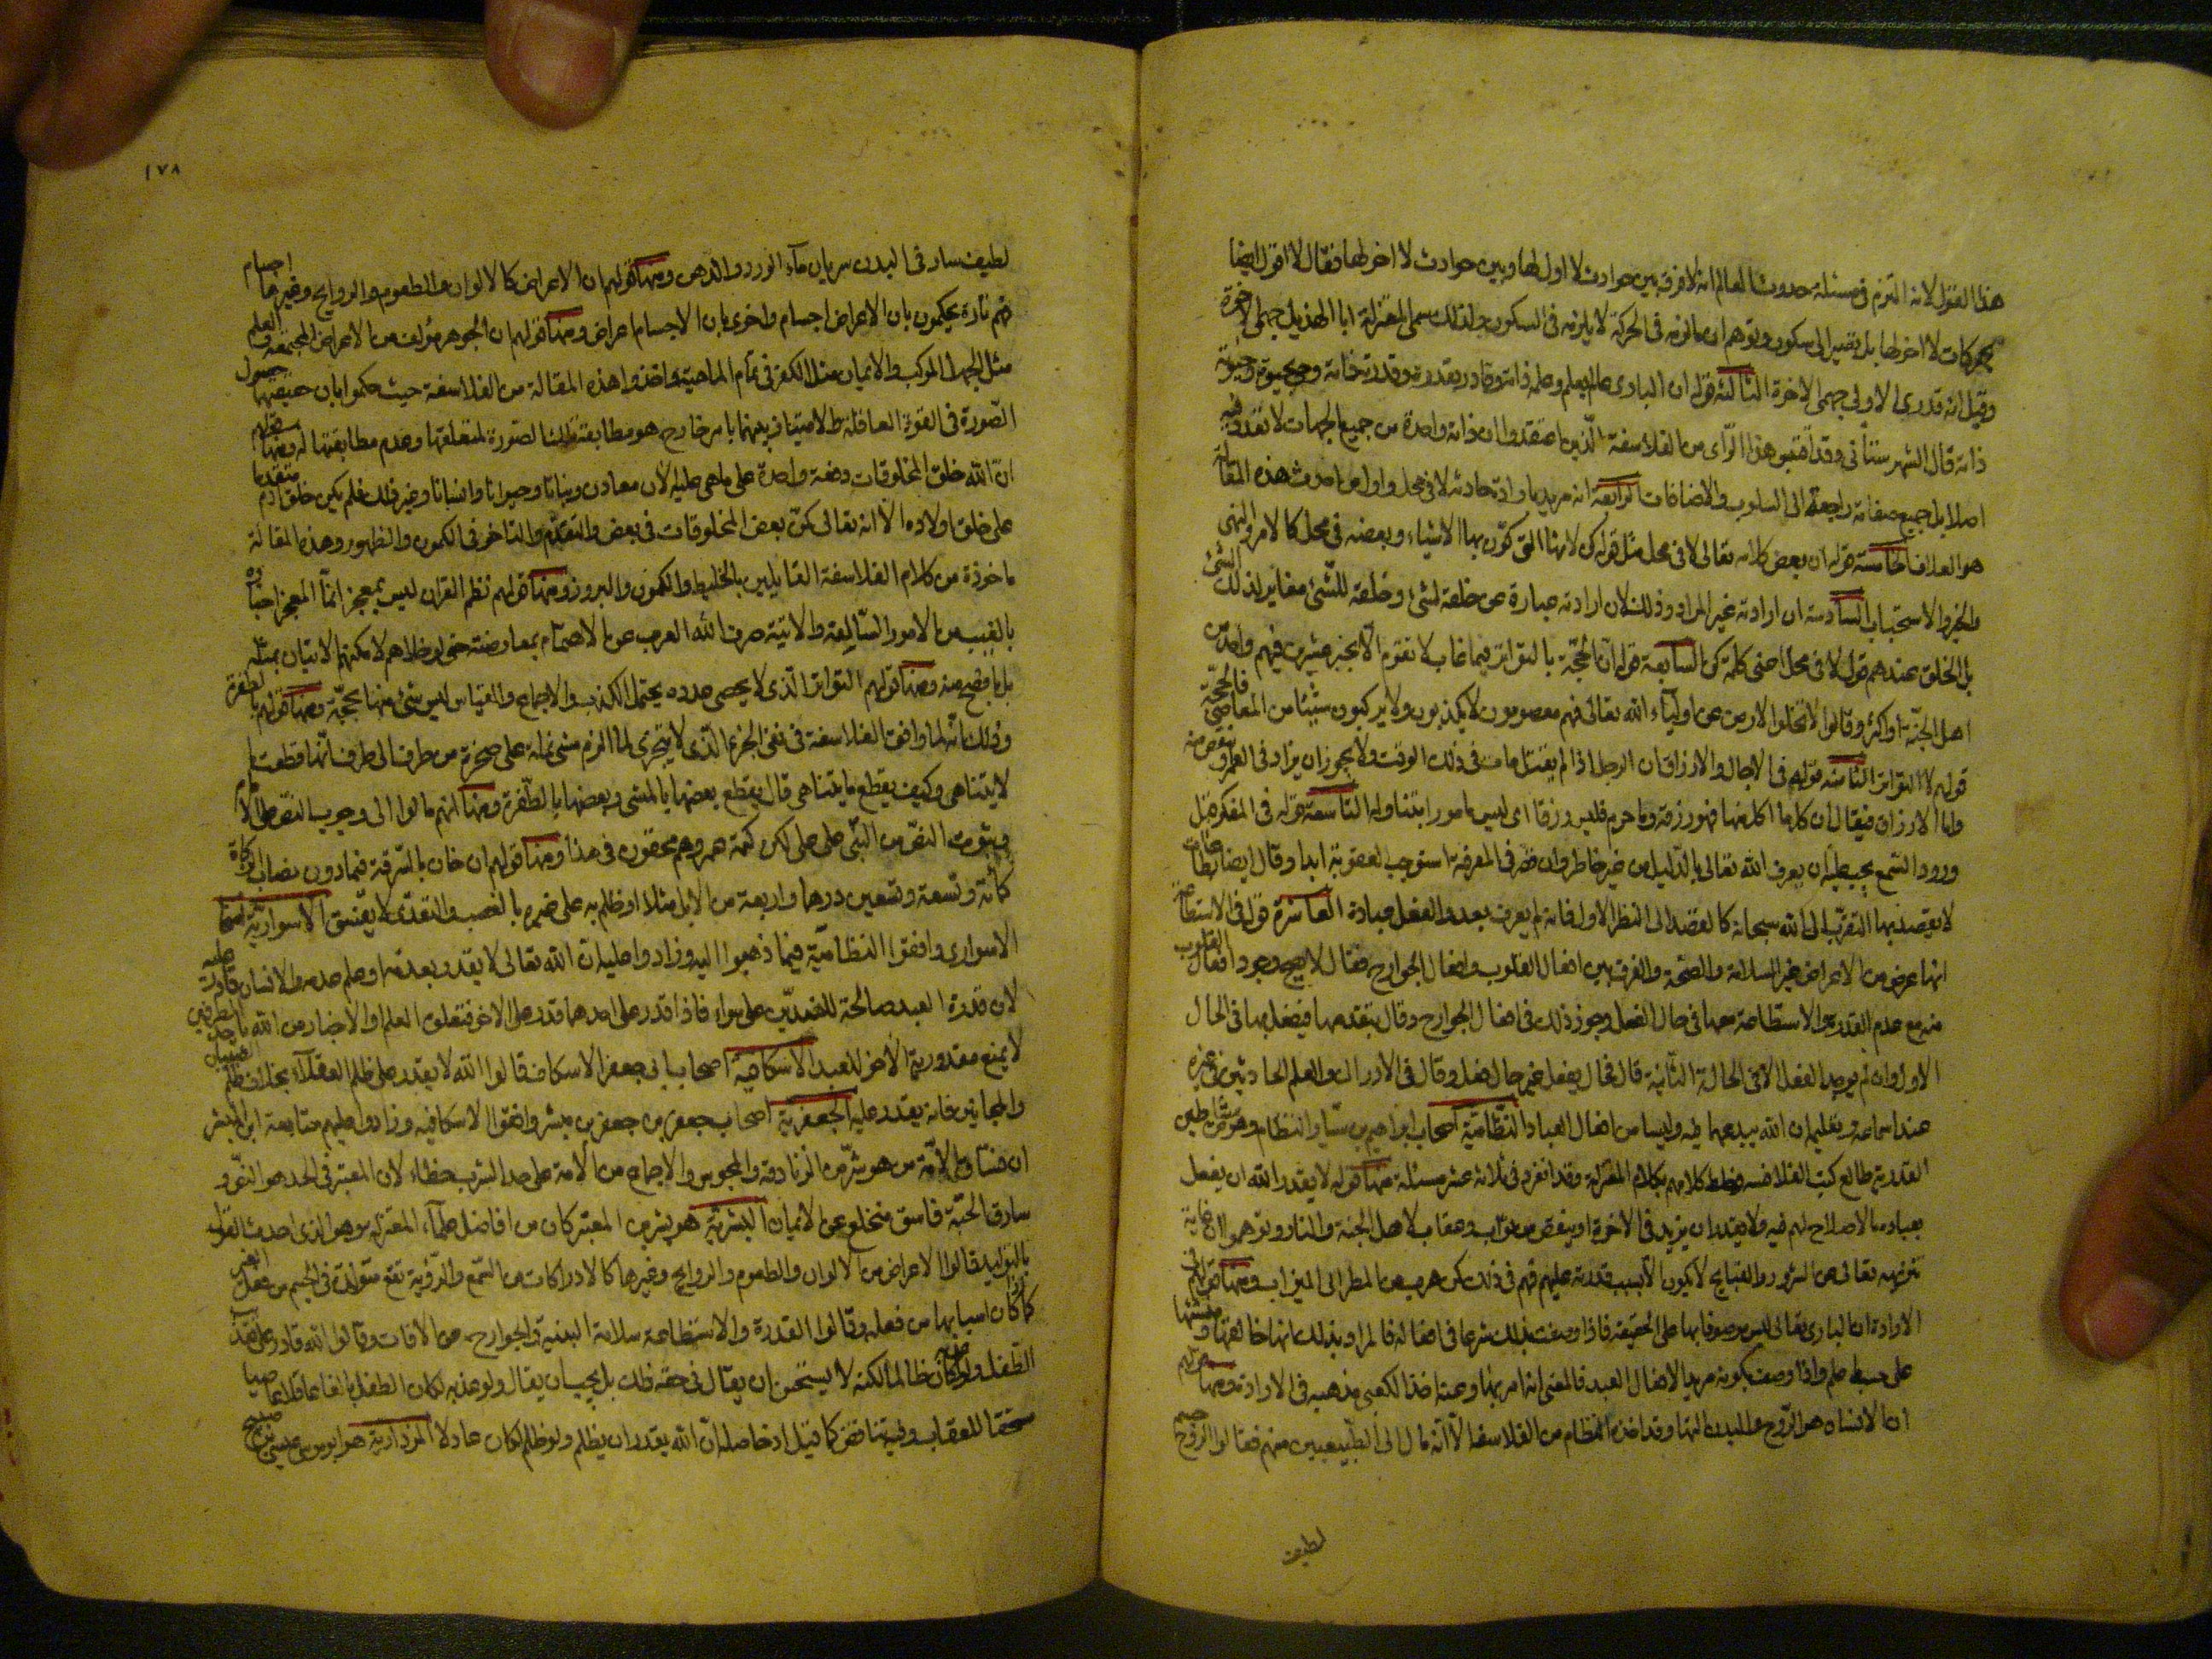 هذا القول لانه التزم فى مسئلة حدوث العالم انه لا فرق بين حوادث لا اول لها وبين حوادث لا اخر لها فقال لا اقول ايضا
بحركات لا اخر لها بل تصير الى سكون وتوهم ان ما لزمه فى الحركة لا يلزمه فى السكون ولذلك سمى المعتزلة ابا الهذيل جهمى الاخرة
وقيل انه قدرى الاولى جهمى الاخرة الثالثة قوله ان البارى عالم بعلم وعلمه ذاته وقادر بقدرة وقدرته ذاته وحى بحيوة وحيوته
ذاته قال الشهرستانى وقد اقتبس هذا الرأى من الفلاسفة الذين اعتقدوا ان ذاته واحدة من جميع الجهات لا تعدد فيه
اصلا بل جميع صفاته راجعة الى السلوب والاضافات الرابعة انه مريد بارادة حادثة لا فى محل واول من احدث هذه المقالة
هو العلاف الخامسة قوله ان بعض كلامه تعالى لا فى محل مثل قوله كن لانها التى كون بها الاشياء وبعضه فى محل كالامر والنهى
والخبر والاستخبار السادسة ان ارادته غير المراد وذلك لان ارادته عبارة عن خلقه لشئ وخلقه للشئ مغاير لذلك الشئ
بل الخلق عندهم قول لا فى محل اعنى كلمة كن السابعة قوله ان الحجة بالتواتر فيما غاب لا تقوم الا بخبر عشرين فيهم واحد من
اهل الجنة او اكثر وقالوا لا تخلوا الارض عن اولياء الله تعالى فهم معصومون لا يكذبون ولا يرتكبون شيئا من المعاصى فالحجة
قولهم لا التواتر الثامنة قولهم فى الاجال والارزاق ان الرجل اذا لم يقتل مات فى ذلك الوقت ولا يجوز ان يزاد فى العمر او ينقص منه
واما الارزاق فيقال ان كل ما اكل منها فهو رزقه وما حرم فليس رزقا اى ليس مامورا بتناوله التاسعة قوله فى المفكر قبل
ورود السمع يجب عليه ان يعرف الله تعالى بالدليل من غير خاطر وان قصر فى المعرفة استوجب العقوبة ابدا وقال ايضا بطاعات
لا يقصد بها التقرب الى الله سبحانه كالقصد الى النظر الاول فانه لم يعرف بعد والفعل عبادة العاشرة قوله فى الاستطاعة
انها عرض من الاعراض غير السلامة والصحة والفرق بين افعال القلوب وافعال الجوارح فقال لا يصح وجود افعال القلوب
منه مع عدم القدرة والاستطاعة معها فى حال الفعل وجوز ذلك فى افعال الجوارح وقال بتقدمها فيفعل بها فى الحال
الاول وان لم يوجد الفعل الا فى الحالة الثانية قال فحال يفعل غير حال فعل وقال فى الادراك والعلم الحادثين فى غيره
عند اسماعه وتعليمه ان الله يبدعهما فيه وليسا من افعال العباد النظامية اصحاب ابراهيم بن سيار النظام وهو من شياطين
القدرية طالع كتب الفلاسفه وخلط كلامهم بكلام المعتزلة وقد انفرد فى ثلاثة عشر مسئلة منها قوله لا يقدر الله ان يفعل
بعباده ما لا صلاح لهم فيه ولا يقدر ان يزيد فى الاخرة او ينقص من ثواب وعقاب لاهل الجنة والنار وتوهموا ان غاية
تنزيهه تعالى عن الشرور والقبايح لا يكون الا بسبب قدرته عليهم فهم فى ذلك كمن هرب من المطر الى الميزاب ومنها قوله فى
الارادة ان البارى تعالى ليس موصوفا بها على الحقيقه فاذا وصفت بذلك شرعا فى افعاله فالمراد بذلك انها خالقها ومنشئها
على حسب علم واذا وصف بكونه مريدا لافعال العبد فالمعنى انه امر بها وعنه اخذ الكعبى مذهبه فى الارادة ومنها قوله
ان الانسان هو الروح والبدن التها وقد اخذه النظام من الفلاسفه الا انه مال الى الطبيعيين منهم فقالوا الروح جسم
لطيف
١٧٨
لطيف سار فى البدن سريان ماء الورد والدهن ومنها قولهم ان الاعراض كالالوان والطعوم والروايح وغيرها اجسام
فهم تارة يحكمون بان الاعراض اجسام واخرى بان الاجسام اعراض ومنها قولهم ان الجوهر مؤلف من الاعراض المجتمعه والعلم
مثل الجهل المركب والايمان مثل الكفر فى تمام الماهية واخذوا هذه المقالة من الفلاسفة حيث حكموا بان حقيقتهما حصول
الصورة فى القوة العاقلة والامتياز بينهما بامر خارج هو مطابقة تلك الصورة لمتعلقها وعدم مطابقتها له ومنها قولهم
ان الله خلق المخلوقات دفعة واحدة على ما هى عليه الان معادن ونباتا وحيوانا وانسانا وغير ذلك فلم يكن خلق ادم متقدما
على خلق اولاده الا انه تعالى كمن بعض المخلوقات فى بعض والتقدم والتاخر فى الكمون والظهور وهذه المقالة
ماخوذة من كلام الفلاسفة القايلين بالخليط والكمون والبروز ومنها قولهم نظم القران ليس بمعجز انما المعجز اخباره
بالغيب من الامور السالفة والاتية وصرف الله العرب عن الاهتمام بمعارضته حتى لو خلاهم لامكنهم الاتيان بمثله
بل بافصح منه ومنها قولهم التواتر الذى لا يحصى عدده يحتمل الكذب والاجماع والقياس ليس شئ منها بحجة ومنها قولهم بالطفرة
وذلك انه لما وافق الفلاسفة فى نفى الجزء الذى لا يتجزى لما الزم مشى نملة على صخرة من طرف الى طرف انها قطعت ما
لا يتناهى وكيف يقطع ما يتناهى قال يقطع بعضها بالمشى وبعضها بالطفرة ومنها انهم مالوا الى وجوب النص على الامام
وثبوت النص من النبى صلى على على لكن كتمه عمر وهم محقون فى هذا ومنها قولهم ان خان بالسرقة فيما دون نصاب الزكاة
كمائة وتسعة وتسعين درهما واربعة من الابل مثلا او ظلم به على غيره بالغصب والتعدى لا يفسق الاسوارية اصحاب
الاسوارى وافقوا النظامية فيما ذهبوا اليه وزادوا عليه ان الله تعالى لا يقدر بعدمه او علم عدمه والانسان قادر عليه
لان قدرة العبد صالحة للضدين على سواء فاذا قدر على احدهما قدر على الاخر فتعلق العلم والاخبار من الله باحد الطرفين
لا يمنع مقدورية الاخر للعبد الاسكافية اصحاب ابى جعفر الاسكاف قالوا الله لا يقدر على ظلم العقلاء بخلاف ظلم الصبيان
والمجانين فانه يقدر عليه الجعفرية اصحاب جعفر بن جعفر بن مبشر وافقوا الاسكافيه وزادوا عليهم متابعة ابن المبشر
ان فساق الامة من هو شر من الزنادقة والمجوس والاجماع من الامة على حد الشرب خطاء لان المعتبر فى الحد هو النص و
سارق الحبة فاسق منخلع عن الايمان البشرية هو بشر بن المعتبر كان من افاضل علماء المعتزلة وهو الذى احدث القول
بالتوليد قالوا الاعراض من الالوان والطعوم والروايح وغيرها كالادراكات من السمع والرؤية تقع متولدة فى الجسم من فعل الغير
كما كان اسبابها من فعله وقالوا القدرة والاستطاعة سلامة البنية والجوارح عن الافات وقالوا الله قادر على تعذيب
الطفل ولو كان ظالما لكنه لا يستحسن ان يقال فى حقه ذلك بل يجب ان يقال ولو عذبه لكان الطفل بالغا عاقلا عاصيا
مستحقا للعقاب وفيه تناقض كما قيل اذ حاصله ان الله يقدر ان يظلم ولو ظلم لكان عادلا المزدارية هو ابو موسى عيسى بن صبيح